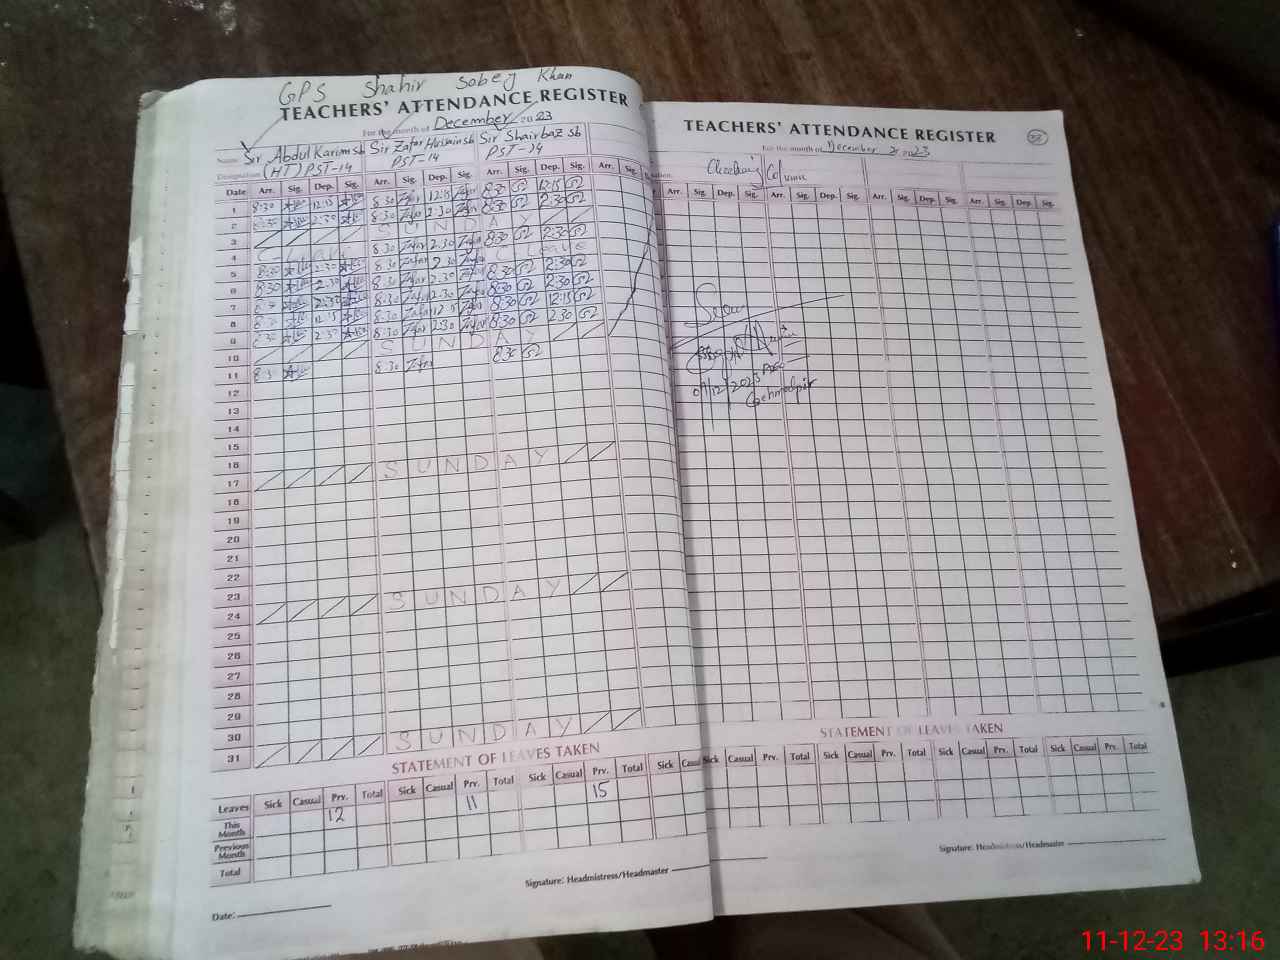 GPS Shahir Sobej Khan
TEACHERS' ATTENDANCE REGISTER
For the month of December 2023
Name Sir Abdul Karim sb Sir Zafar Hussain sb Sir Shairbaz sb
Designation (HT) PST-14 PST-14 PST-14
Date Arr. Sig. Dep. Sig. Arr. Sig. Dep. Sig. Arr. Sig. Dep. Sig. Arr. Sig.
1 8:30 12:15 8:30 Zafar 12:15 Zafar 8:30 12:15
2 8:30 2:30 8:30 Zafar 2:30 Zafar 8:30 2:30
3 SUNDAY
4 C-Leave 8:30 Zafar 2:30 Zafar 8:30 2:30
5 8:30 2:30 8:30 Zafar 2:30 Zafar C Leave
6 8:30 2:30 8:30 Zafar 2:30 Zafar 8:30 2:30
7 8:30 2:30 8:30 Zafar 2:30 Zafar 8:30 2:30
8 8:30 12:15 8:30 Zafar 12:15 Zafar 8:30 12:15
9 8:30 2:30 8:30 Zafar 2:30 Zafar 8:30 2:30
10 SUNDAY
11 8:30 8:30 Zafar 8:30
12
13
14
15
16
17 SUNDAY
18
19
20
21
22
23
24 SUNDAY
25
26
27
28
29
30
31 SUNDAY
STATEMENT OF LEAVES TAKEN
Leaves Sick Casual Prv. Total Sick Casual Prv. Total Sick Casual Prv. Total Sick Casual
This Month 12 11 15
Previous Month
Total
Signature: Headmistress/Headmaster
Date:
TEACHERS' ATTENDANCE REGISTER
For the month of December 2023
Checking Column
Arr. Sig. Dep. Sig. Arr. Sig. Dep. Sig. Arr. Sig. Dep. Sig. Arr. Sig. Dep. Sig.
Seen
09/12/2023
STATEMENT OF LEAVES TAKEN
Sick Casual Prv. Total Sick Casual Prv. Total Sick Casual Prv. Total Sick Casual Prv. Total
Signature: Headmistress/Headmaster
11-12-23 13:16